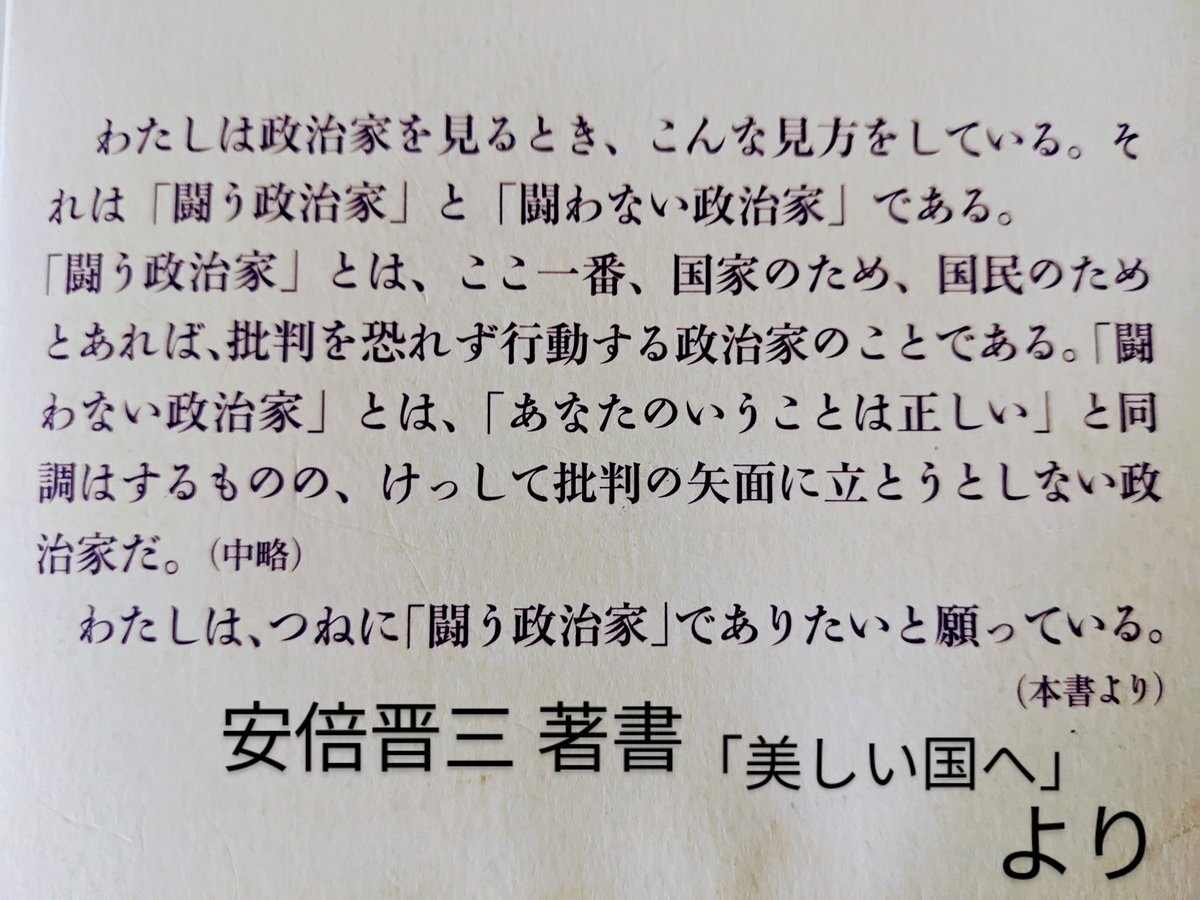 わたしは政治家を見るとき、こんな見方をしている。そ
れは「闘う政治家」と「闘わない政治家」である。
「闘う政治家」とは、ここ一番、国家のため、国民のため
とあれば、批判を恐れず行動する政治家のことである。「闘
わない政治家」とは、「あなたのいうことは正しい」と同
調はするものの、けっして批判の矢面に立とうとしない政
治家だ。(中略)
わたしは、つねに「闘う政治家」でありたいと願っている。
(本書より)
安倍晋三 著書「美しい国へ」
より